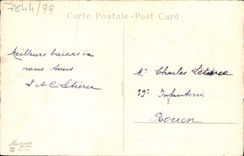 7844/99
Carte Postale - Post Card
Meilleurs baisers de
nous tous
Mr Charles
39e Infanterie
Rouen